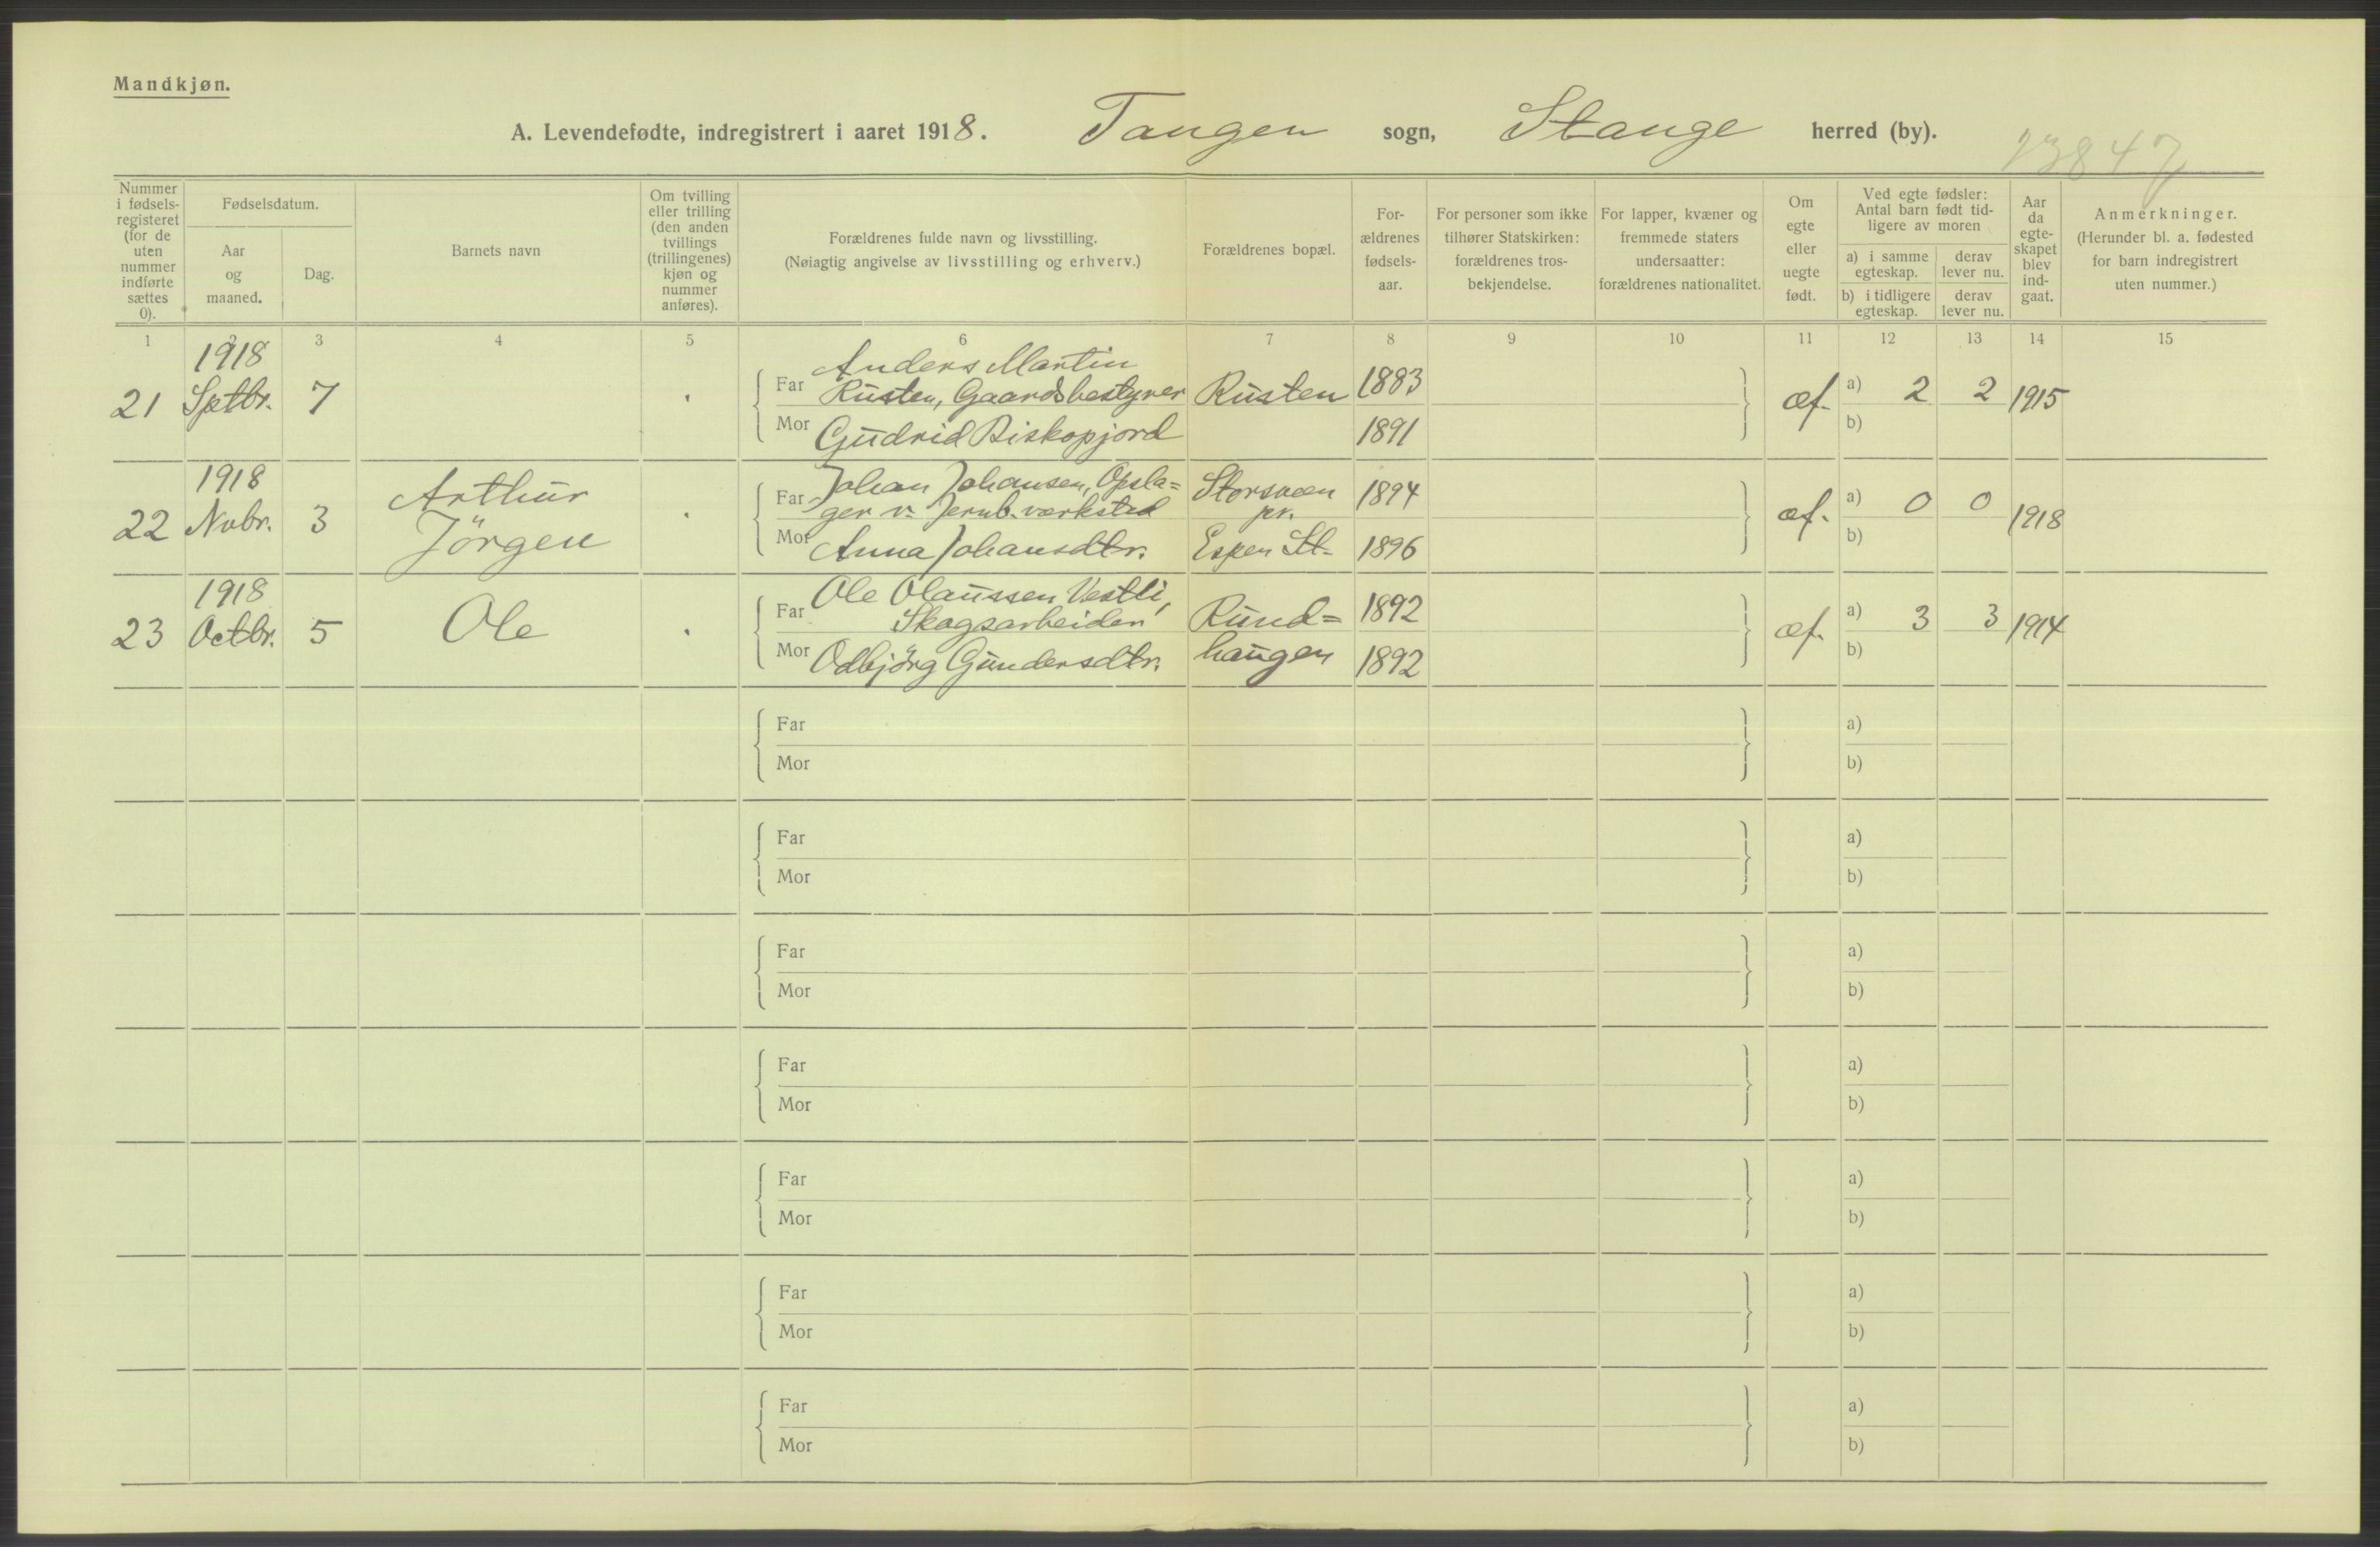 Mandkjøn.
A. Levendefødte, indregistrert i aaret 1918. Tangen sogn, Stange herred (by).
23847
Nummer i fødsels-registeret (for de uten nummer indførte sættes 0).
Fødselsdatum.
Aar og maaned.
Dag.
Barnets navn
Om tvilling eller trilling (den anden tvillings (trillingenes) kjøn og nummer anføres).
Forældrenes fulde navn og livsstilling.
(Nøiagtig angivelse av livsstilling og erhverv.)
Forældrenes bopæl.
For-ældrenes fødsels-aar.
For personer som ikke tilhører Statskirken: forældrenes tros-bekjendelse.
For lapper, kvæner og fremmede staters undersaatter: forældrenes nationalitet.
Om egte eller uegte født.
Ved egte fødsler: Antal barn født tid-ligere av moren
a) i samme egteskap.
derav lever nu.
b) i tidligere egteskap.
derav lever nu.
Aar da egte-skapet blev ind-gaat.
Anmerkninger.
(Herunder bl. a. fødested for barn indregistrert uten nummer.)
1 2 3 4 5 6 7 8 9 10 11 12 13 14 15
21 1918 Sptbr. 7
Far Anders Martin
Rusten, Gaardsbestyrer Rusten 1883
Mor Gudrid Biskopjord 1891
æf. a) 2 2 1915
b)
22 1918 Nvbr. 3 Arthur
Jörgen
Far Johan Johansen, Opsla=
ger v. Jernb.værksted
Mor Anna Johansdtr.
Storsveen
pr.
Espen St.
1894
1896
æf. a) 0 0 1918
b)
23 1918 Octbr. 5 Ole
Far Ole Olaussen Vestli,
Skogsarbeider
Mor Odbjörg Gundersdtr.
Rund=
haugen
1892
1892
æf. a) 3 3 1914
b)
Far a)
Mor b)
Far a)
Mor b)
Far a)
Mor b)
Far a)
Mor b)
Far a)
Mor b)
Far a)
Mor b)
Far a)
Mor b)